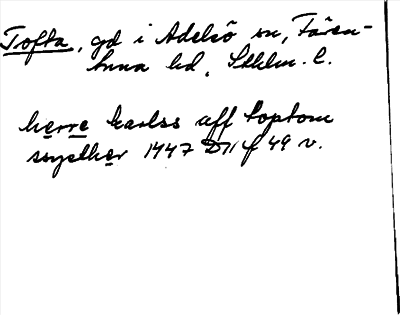 Tofta, gd i Adelsö sn, Fären-
tuna hd, Sthlm. l.
herre karlss aff toptom
1447 D11 f 49 v.